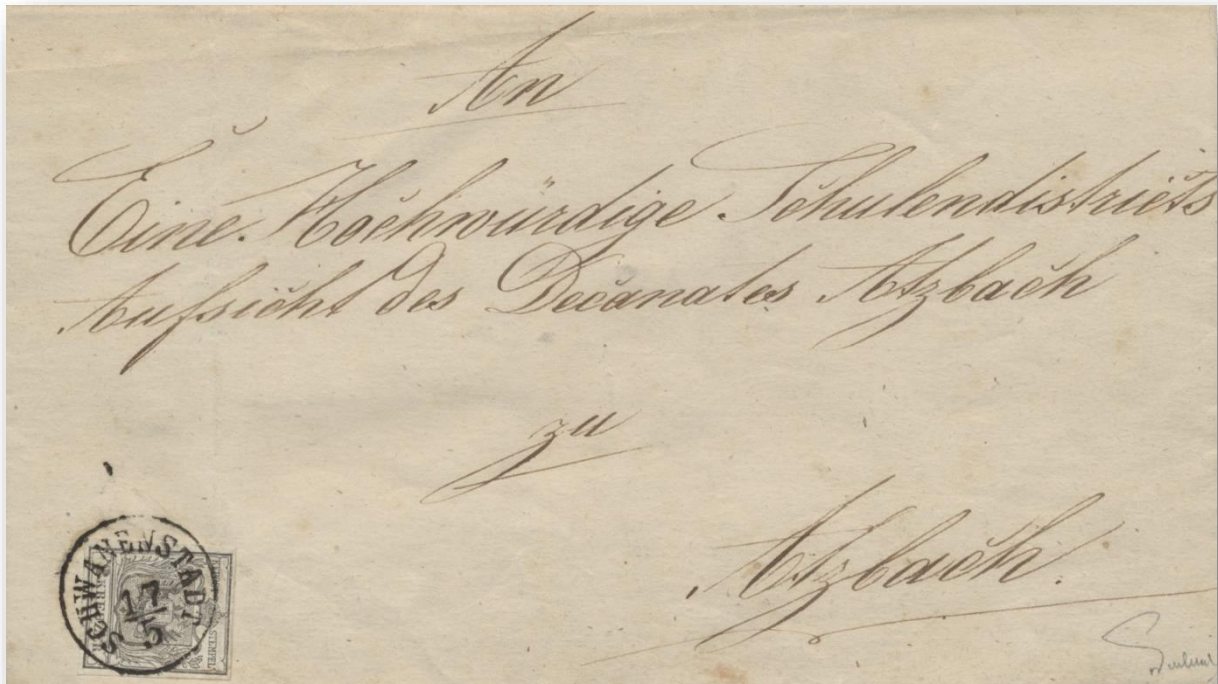 An
Eine Hochwürdige Schulendistricts
Aufsicht des Decanates Atzbach
zu
Atzbach.
SCHWANENSTADT
17
5
STEMPEL